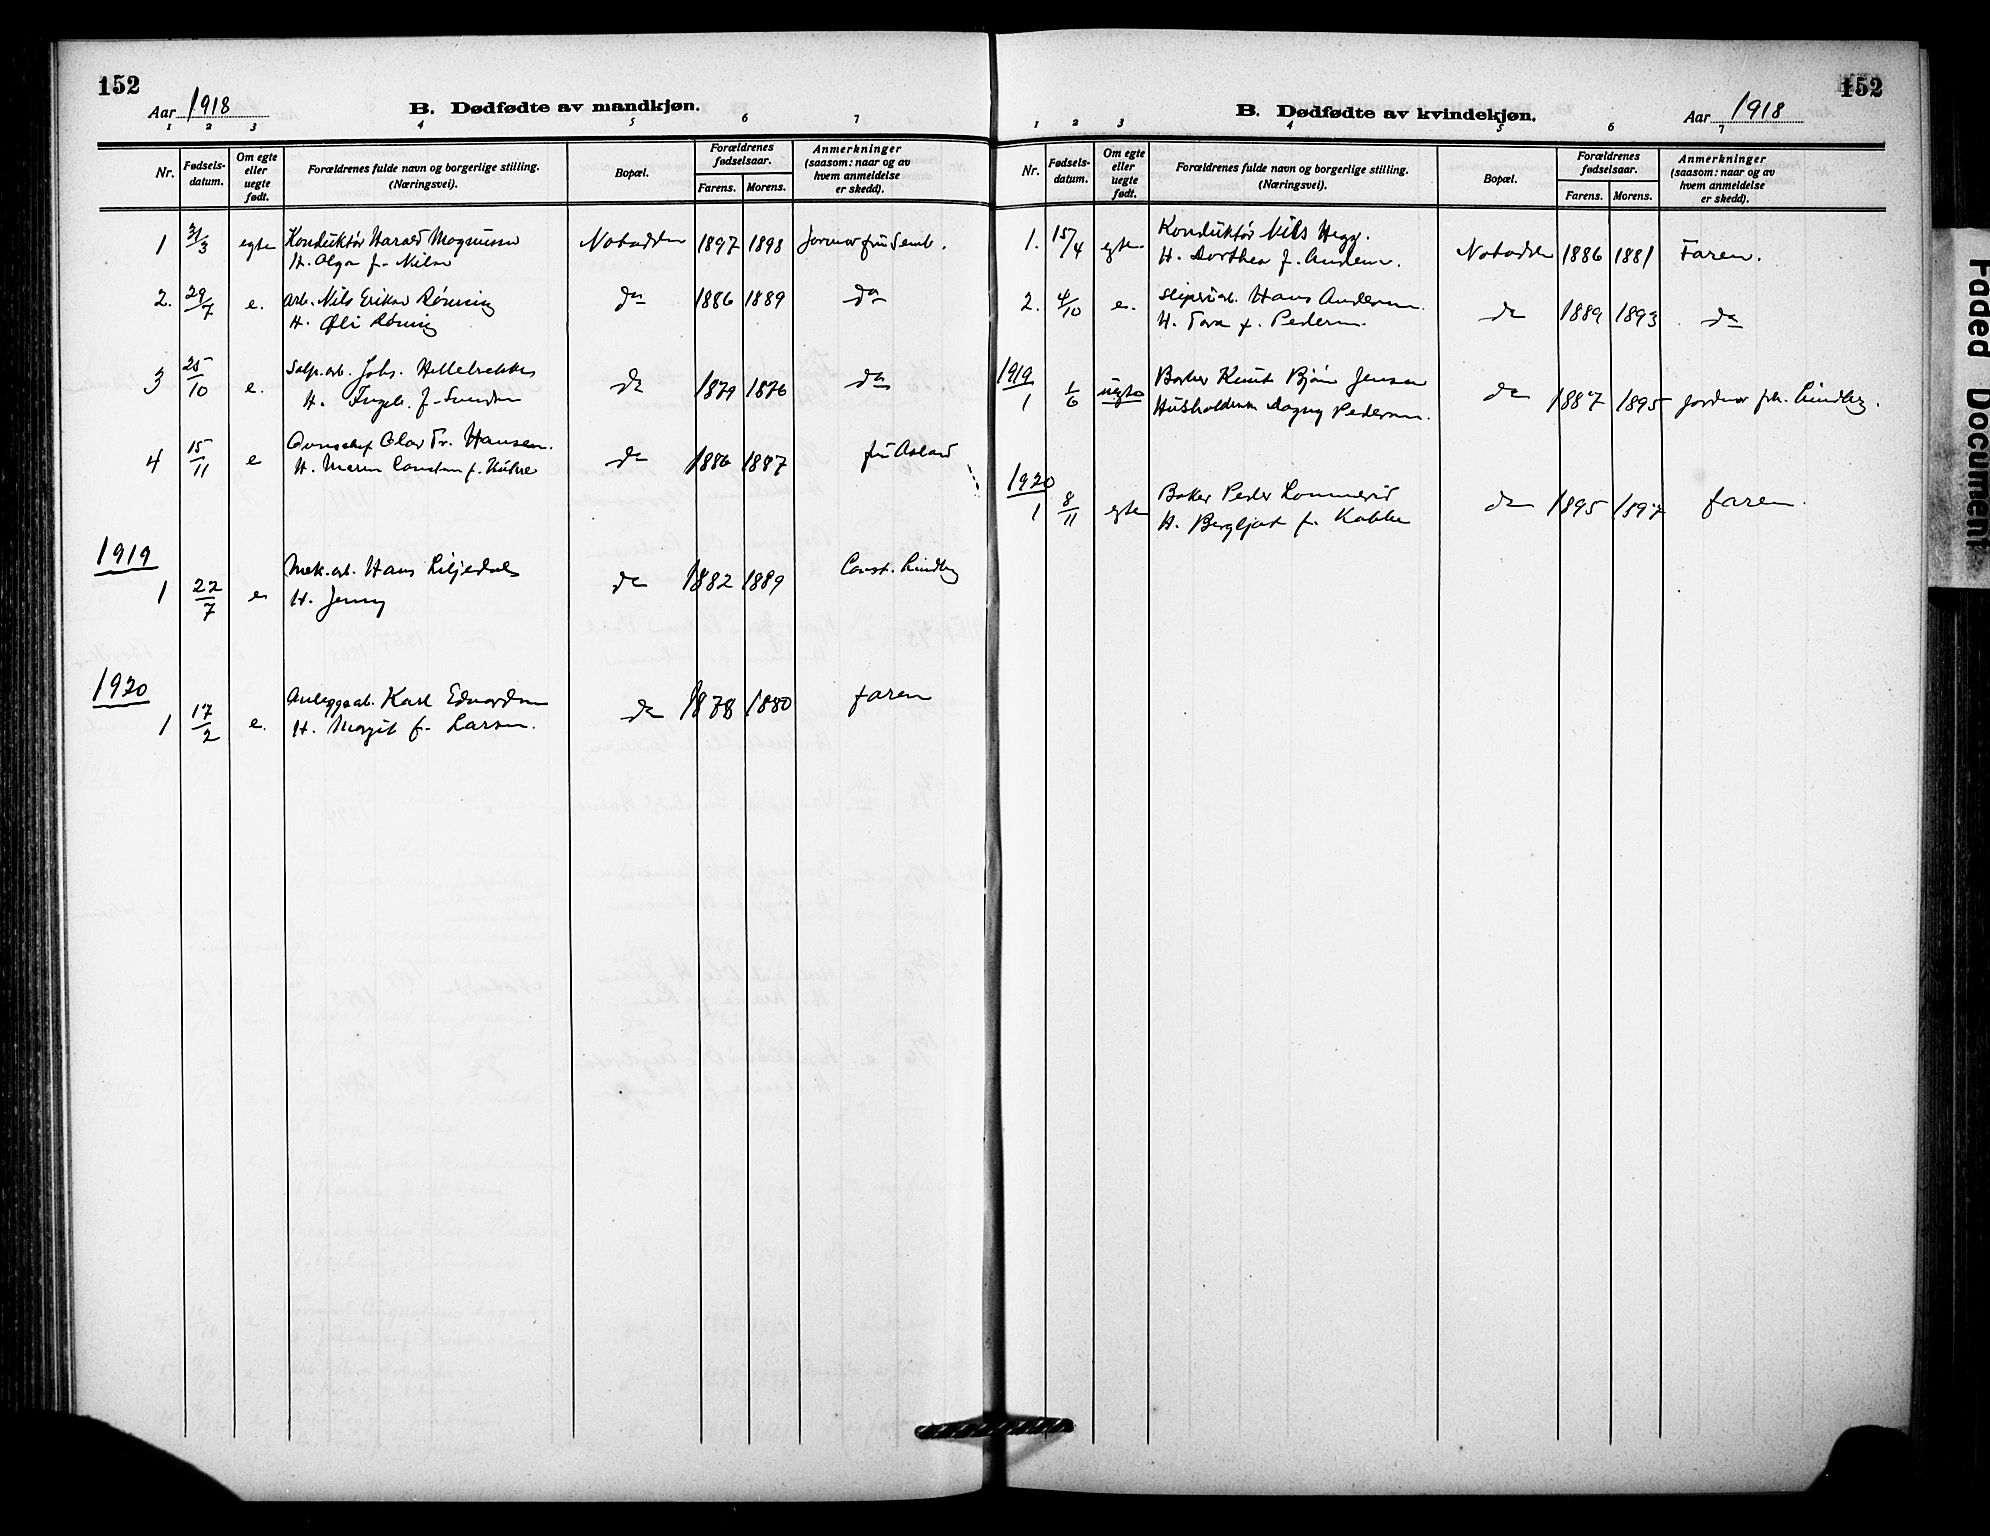 152
Aar 1918
B. Dødfødte av mandkjøn.
1 2 3 4 5 6 7
Nr.
Fødsels-
datum.
Om egte
eller
uegte
født.
Forældrenes fulde navn og borgerlige stilling.
(Næringsvei).
Bopæl.
Forældrenes
fødselsaar.
Farens. Morens.
Anmerkninger
(saasom: naar og av
hvem anmeldelse
er skedd).
1 31/3 egte Konduktør Harald Magnussen Notodden 1897 1898 jormor fru Semb.
H. Olga f. Nilsen
2. 29/7 e. arb. Nils Eriksen Rønning do 1886 1889 do
H. Øli Rønnig
3 25/10 e. Salp.arb. Johs. do 1879 1876 do
H. Ingeb. f.
4 15/11 e Olav Tr. Hansen. do 1886 1887 fru Aaland
H. Maren f.
1919
1 22/7 e Mek.arb. Hans Liljedal do 1882 1889 Const. Lindberg
H. Jenny
1920
1 17/2 e. Anleggsarb. Karl Edvardsen do 1878 1880 faren
H. Margit f. Larsen.
152
B. Dødfødte av kvindekjøn.
Aar 1918
1 2 3 4 5 6 7
Nr.
Fødsels-
datum.
Om egte
eller
uegte
født.
Forældrenes fulde navn og borgerlige stilling.
(Næringsvei).
Bopæl.
Forældrenes
fødselsaar.
Farens. Morens.
Anmerkninger
(saasom: naar og av
hvem anmeldelse
er skedd).
1. 15/4 egte Konduktør Nils Hegg. Notodden 1886 1881 Faren.
H. Dorthea f. Andersen.
2. 4/10 e. Sliperiarb. Hans Andersen. do 1889 1893 do
H. Tora f. Pedersen.
1919
1 1/6 uegte Baker Knut Bjørn Jensen do 1887 1895 jordmor frk. Lindberg.
Husholderske Dagny Pedersen.
1920
1 8/11 egte Baker Peder do 1895 1897 faren.
H. Bergljot f.
Faded Document